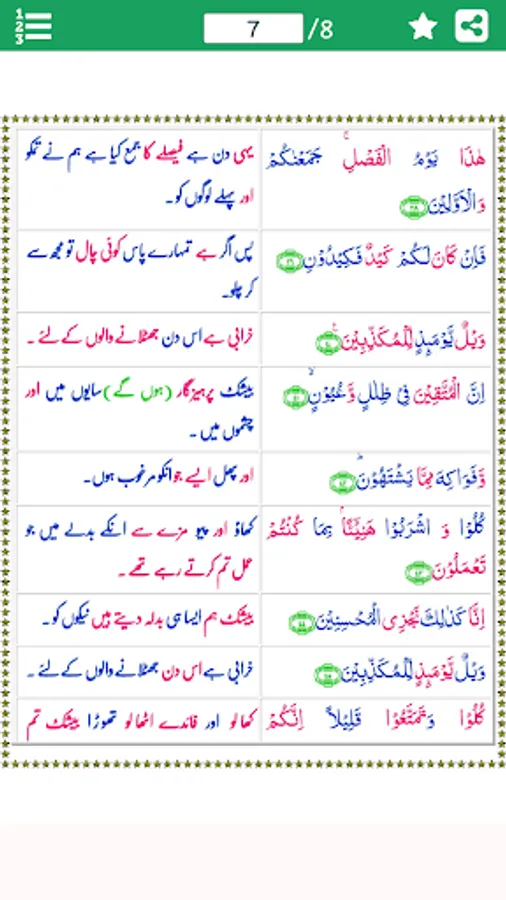 1
2
3
7
/8
هٰذَا يَوْمُ الْفَصْلِ ۚ جَمَعْنٰكُمْ
وَالْاَوَّلِيْنَ ٣٨
یہی دن ہے فیصلے کا جمع کیا ہے ہم نے تمکو
اور پہلے لوگوں کو۔
فَاِنْ كَانَ لَكُمْ كَيْدٌ فَكِيْدُوْنِ ٣٩
پس اگر ہے تمہارے پاس کوئی چال تو مجھ سے
کر چلو۔
وَيْلٌ يَّوْمَىِٕذٍ لِّلْمُكَذِّبِيْنَ ٤٠
خرابی ہے اس دن جھٹلانے والوں کے لئے ۔
اِنَّ الْمُتَّقِيْنَ فِيْ ظِلٰلٍ وَّعُيُوْنٍ ٤١
بیشک پرہیزگار (ہوں گے) سایوں میں اور
چشموں میں ۔
وَّفَوَاكِهَ مِمَّا يَشْتَهُوْنَ ٤٢
اور پھل ایسے جو انکو مرغوب ہوں۔
كُلُوْا وَ اشْرَبُوْا هَنِيْٓـًٔا بِمَا كُنْتُمْ
تَعْمَلُوْنَ ٤٣
کھاؤ اور پیو مزے سے انکے بدلے میں جو
عمل تم کرتے رہے تھے ۔
اِنَّا كَذٰلِكَ نَجْزِى الْمُحْسِنِيْنَ ٤٤
بیشک ہم ایسا ہی بدلہ دیتے ہیں نیکوں کو۔
وَيْلٌ يَّوْمَىِٕذٍ لِّلْمُكَذِّبِيْنَ ٤٥
خرابی ہے اس دن جھٹلانے والوں کے لئے ۔
كُلُوْا وَتَمَتَّعُوْا قَلِيْلًا اِنَّكُمْ
کھا لو اور فائدے اٹھا لو تھوڑا بیشک تم